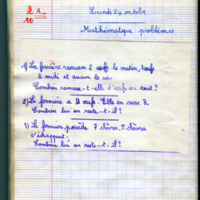 3 A
10
Lundi 24 octobre
Mathématique problèmes
1) La fermière ramasse 2 œufs le matin, 7 œufs
à midi et aucun le soir.
Combien ramasse-t-elle d'œufs en tout ?
2) La fermière a 8 œufs. Elle en casse 3.
Combien lui en reste-t-il ?
3) Le fermier possède 7 chèvres, 5 chèvres
s'échappent.
Combien lui en reste-t-il ?